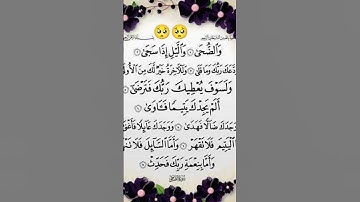 وَالضُّحَىٰ ۝ وَاللَّيْلِ إِذَا سَجَىٰ ۝
دَّعَكَ رَبُّكَ وَمَا قَلَىٰ ۝ وَلَلْآخِرَةُ خَيْرٌ لَّكَ مِنَ الْأُولَىٰ
وَلَسَوْفَ يُعْطِيكَ رَبُّكَ فَتَرْضَىٰ ۝
أَلَمْ يَجِدْكَ يَتِيمًا فَآوَىٰ ۝
وَجَدَكَ ضَالًّا فَهَدَىٰ ۝ وَوَجَدَكَ عَائِلًا فَأَغْنَىٰ
الْيَتِيمَ فَلَا تَقْهَرْ ۝ وَأَمَّا السَّائِلَ فَلَا تَنْهَرْ
وَأَمَّا بِنِعْمَةِ رَبِّكَ فَحَدِّثْ ۝